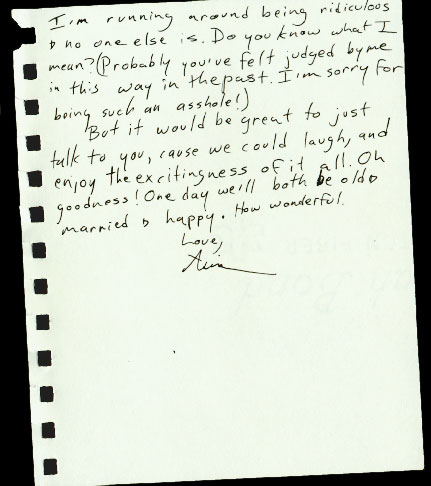 I'm running around being ridiculous
& no one else is. Do you know what I
mean? (Probably you've felt judged by me
in this way in the past. I'm sorry for
being such an asshole!)
But it would be great to just
talk to you, cause we could laugh, and
enjoy the excitingness of it all. Oh
goodness! One day we'll both be old &
married & happy. How wonderful.
Love,